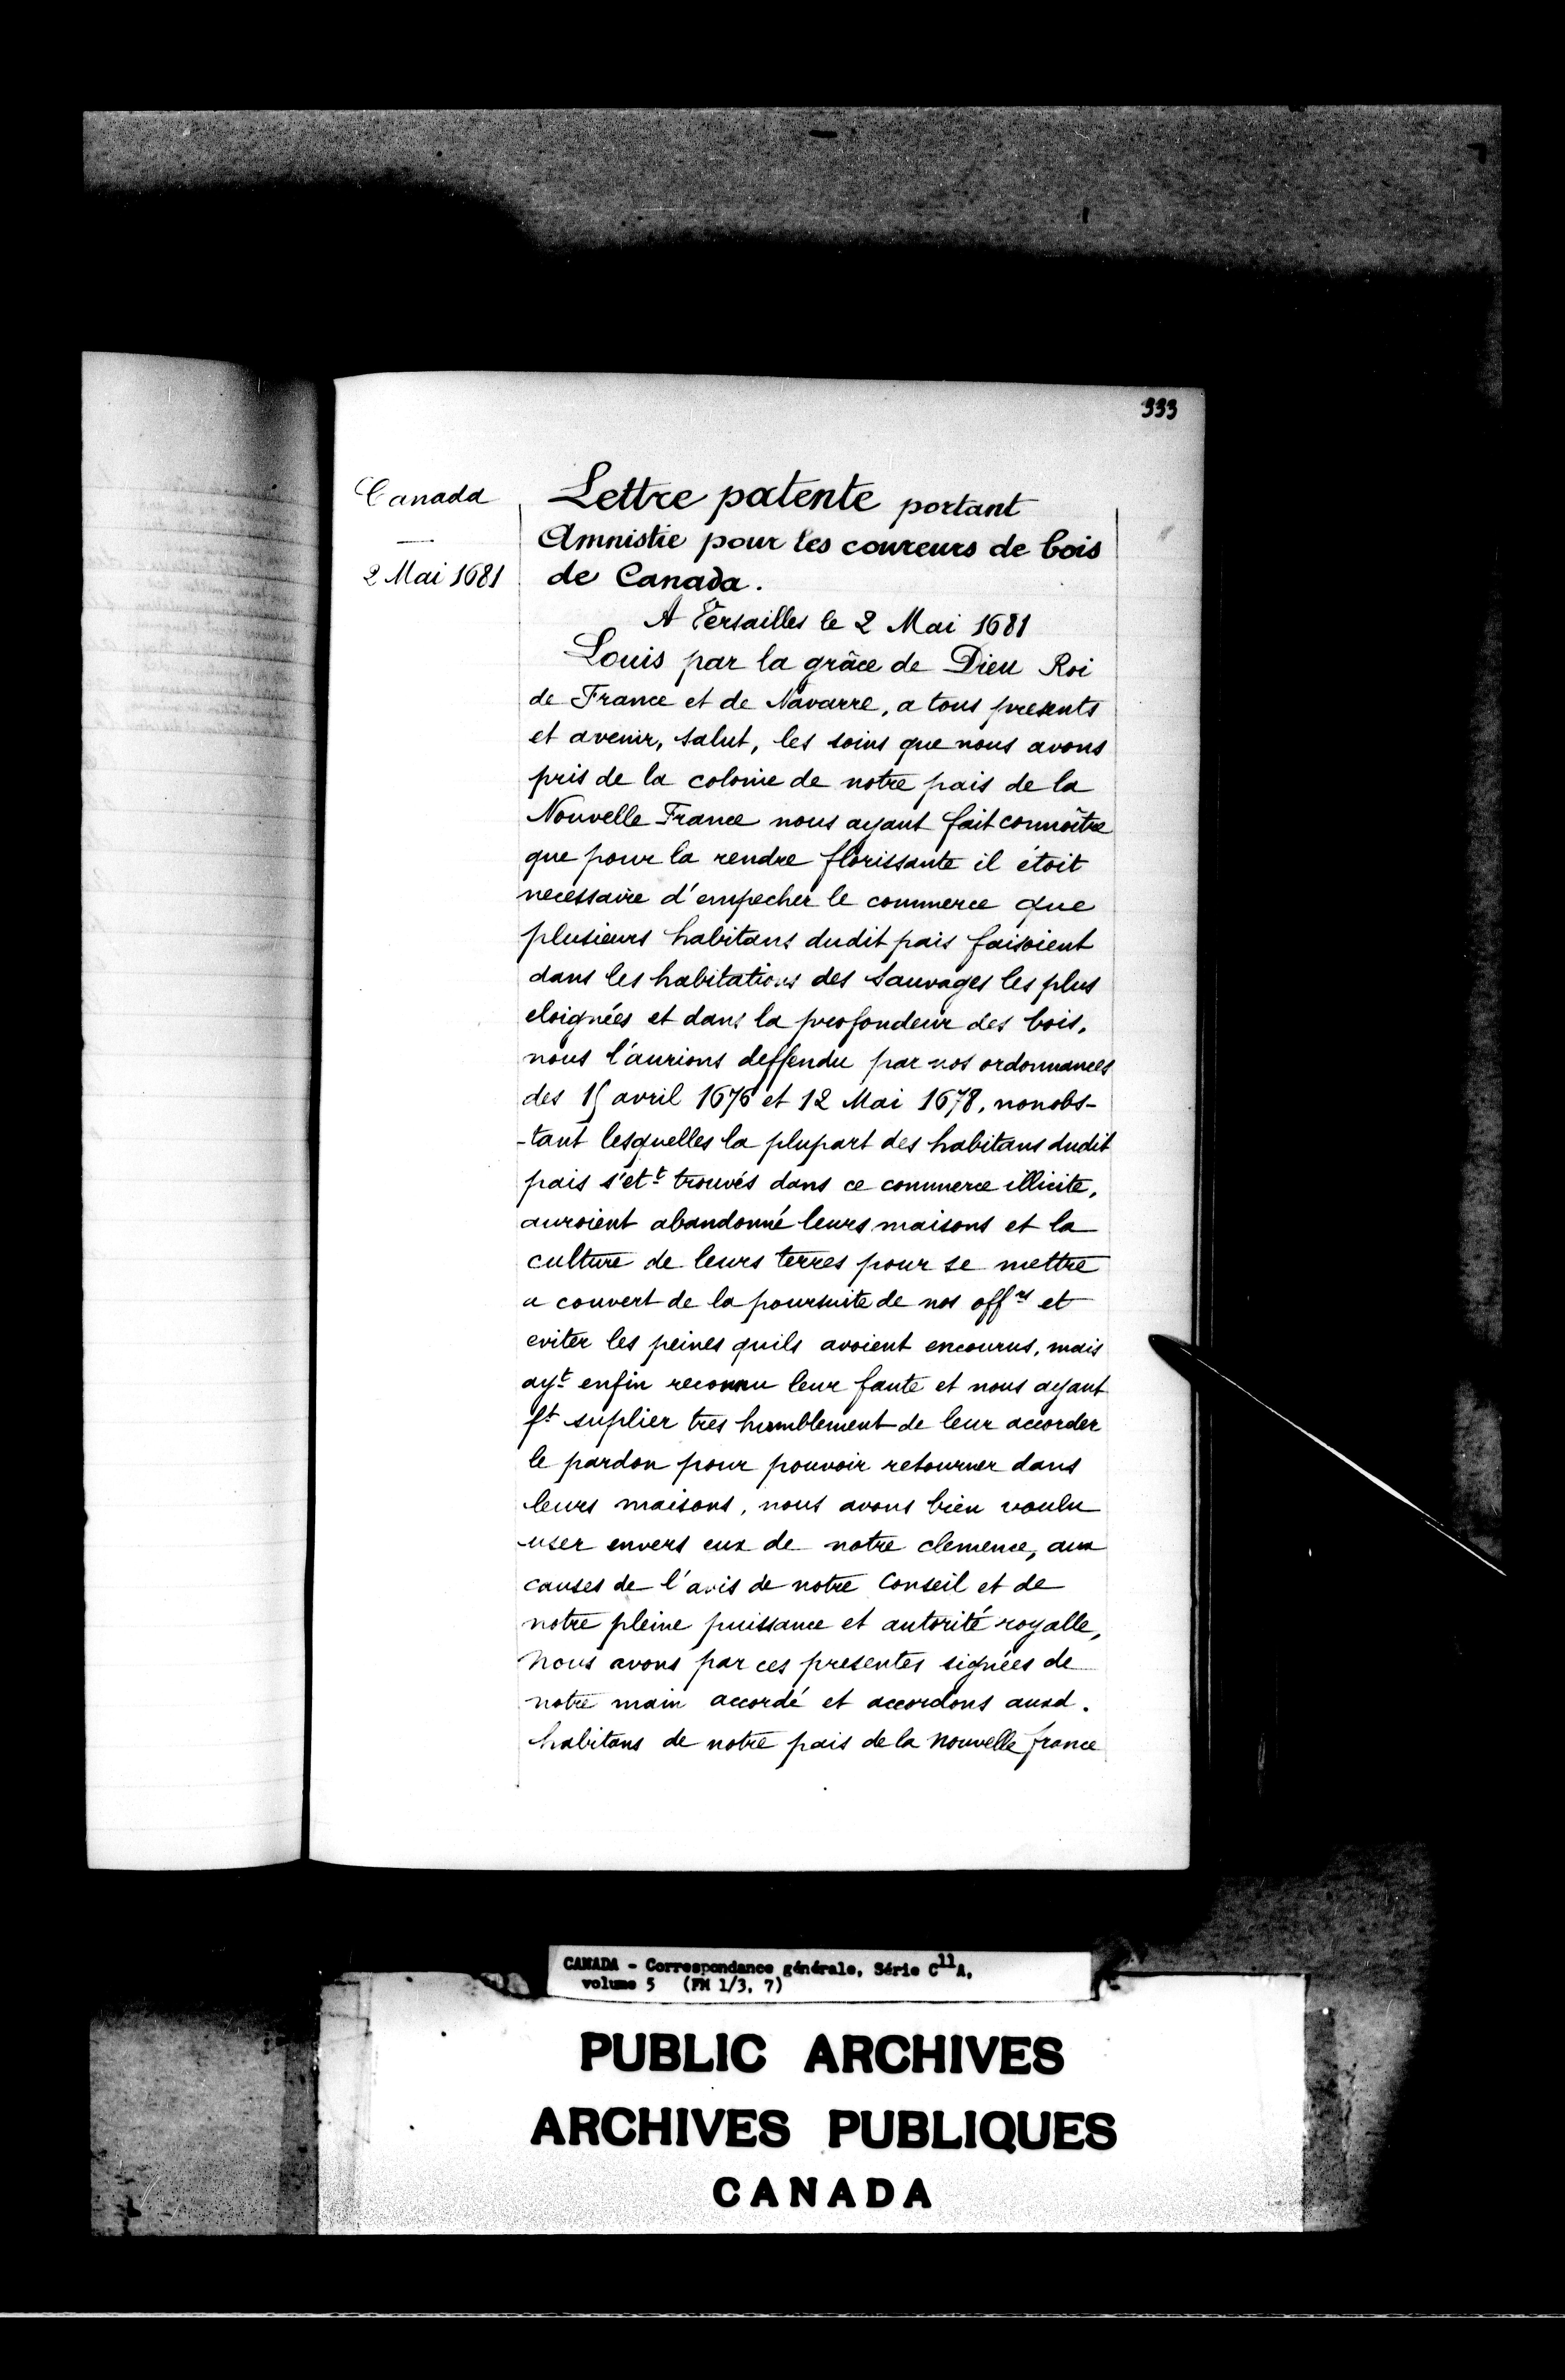 333
Canada
—
2 Mai 1681
Lettre patente portant
Amnistie pour les coureurs de bois
de Canada.
A Versailles le 2 Mai 1681
Louis par la grâce de Dieu Roi
de France et de Navarre, a tous presents
et avenir, salut, les soins que nous avons
pris de la colonie de notre pais de la
Nouvelle France nous ayant fait connoître
que pour la rendre florissante il étoit
necessaire d'empecher le commerce que
plusieurs habitans dudit pais faisoient
dans les habitations des Sauvages les plus
eloignées et dans la profondeur des bois,
nous l'aurions deffendu par nos ordonnances
des 15 avril 1676 et 12 Mai 1678, nonobs-
-tant lesquelles la plupart des habitans dudit
pais s'ett trouvés dans ce commerce illicite,
auroient abandonné leurs maisons et la
culture de leurs terres pour se mettre
a couvert de la poursuite de nos offrs et
eviter les peines quils avoient encourus, mais
ayt enfin reconnu leur faute et nous ayant
ft suplier tres humblement de leur accorder
le pardon pour pouvoir retourner dans
leurs maisons, nous avons bien voulu
user envers eux de notre clemence, aux
causes de l'avis de notre Conseil et de
notre pleine puissance et autorité royalle,
Nous avons par ces presentes signées de
notre main accordé et accordons auxd.
habitans de notre pais de la Nouvelle france
CANADA - Correspondance générale, Série C11A,
volume 5 (FM 1/3, 7)
PUBLIC ARCHIVES
ARCHIVES PUBLIQUES
CANADA